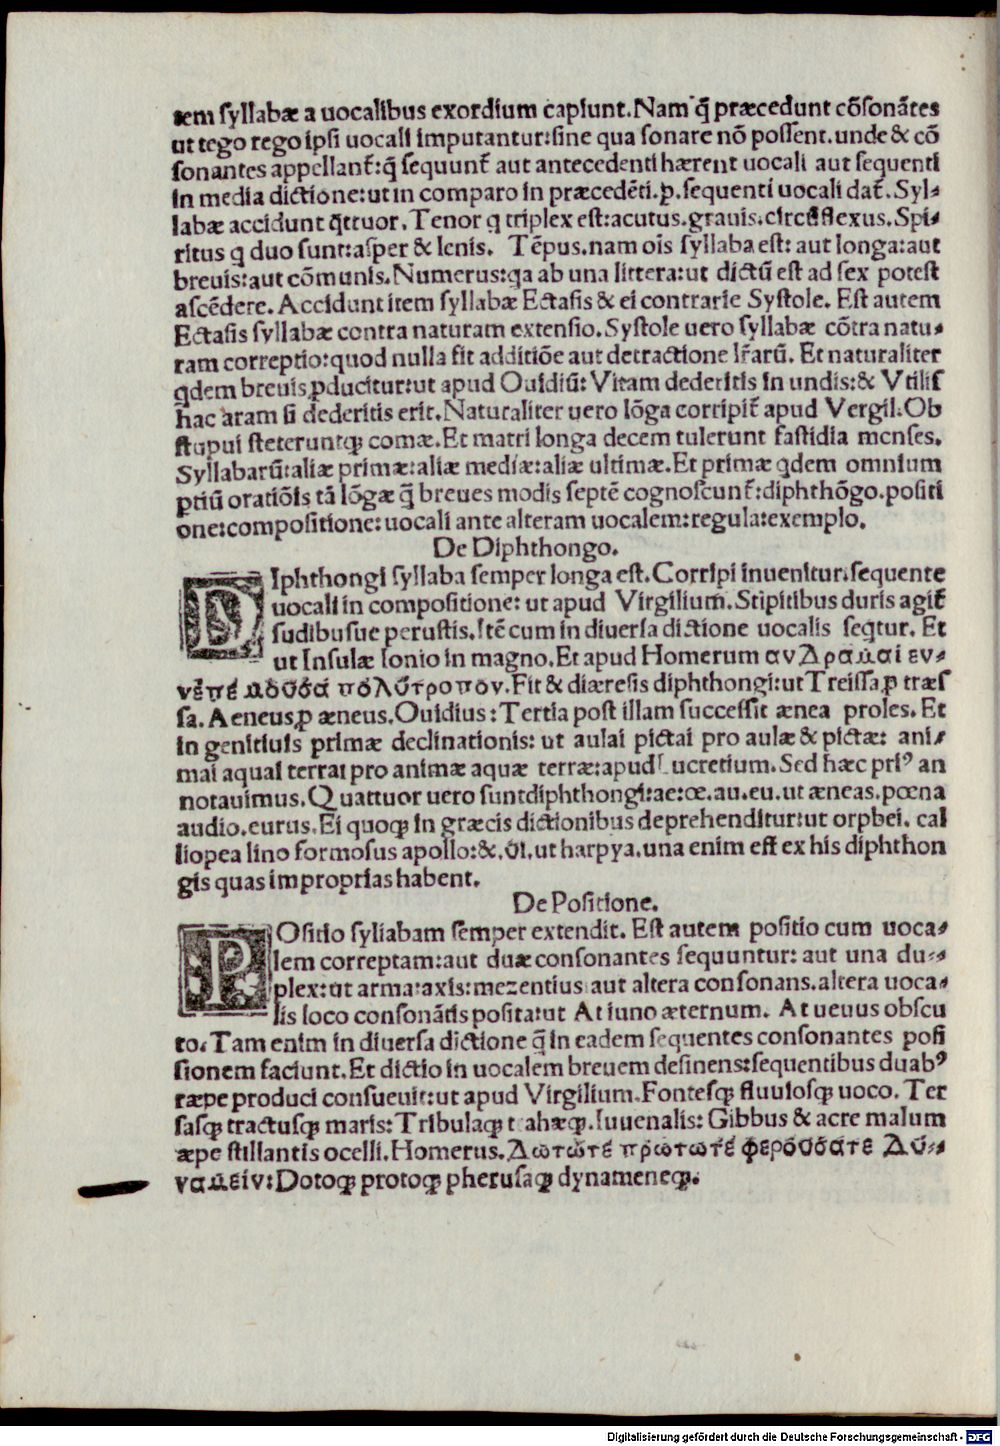 tem syllabæ a uocalibus exordium capiunt. Nam q̄ præcedunt cōsonātes
ut tego rego ipsi uocali imputantur:sine qua sonare nō possent. unde & cō
sonantes appellant̃:q̄ sequunt̃ aut antecedenti hærent uocali aut sequenti
in media dictione:ut in comparo in præcedēti.p. sequenti uocali dat̃. Syl⸗
labæ accidunt q̄ttuor. Tenor q triplex est:acutus.grauis.circūflexus. Spi⸗
ritus q duo sunt:asper & lenis. Tēpus.nam oīs syllaba est: aut longa:aut
breuis:aut cōmunis. Numerus:qa ab una littera:ut dictū est ad sex potest
ascēdere. Accidunt item syllabæ Ectasis & ei contrarie Systole. Est autem
Ectasis syllabæ contra naturam extensio. Systole uero syllabæ cōtra natu⸗
ram correptio:quod nulla fit additiōe aut detractione lr̄arū. Et naturaliter
qdem breuis ꝓducitur:ut apud Ouidiū: Vitam dederitis in undis:& Vtilis
hac aram si dederitis erit. Naturaliter uero lōga corripit̃ apud Vergil. Ob
stupui steteruntꝗ comæ. Et matri longa decem tulerunt fastidia menses.
Syllabarū:aliæ primæ:aliæ mediæ:aliæ ultimæ. Et primæ qdem omnium
ptiū oratiōis tā lōgæ q̄ breues modis septē cognoscunt̃:diphthōgo.positi
one:compositione:uocali ante alteram uocalem:regula:exemplo.
De Diphthongo.
DIphthongi syllaba semper longa est. Corripi inuenitur.sequente
uocali in compositione: ut apud Virgilium. Stipitibus duris agit̃
sudibusue perustis. Itē cum in diuersa dictione uocalis seqtur. Et
ut Insulæ Ionio in magno. Et apud Homerum ανΔραμαι εν⸗
νεπέ μδυσα πδλύτροπον. Fit & diæresis diphthongi:ut Treissa ꝓ træs
sa. Aeneus ꝓ æneus. Ouidius: Tertia post illam successit ænea proles. Et
in genitiuis primæ declinationis: ut aulai pictai pro aulæ & pictæ: ani⸗
mai aquai terrai pro animæ aquæ terræ:apud Lucretium. Sed hæc pri⁹ an
notauimus. Quattuor uero sunt diphthongi:ae:œ.au.eu.ut æneas.pœna
audio.eurus. Ei quoꝗ in græcis dictionibus deprehenditur:ut orphei. cal
liopea lino formosus apollo:&.Yi.ut harpya.una enim est ex his diphthon
gis quas improprias habent.
De Positione.
POsitio syllabam semper extendit. Est autem positio cum uoca⸗
lem correptam:aut duæ consonantes sequuntur: aut una du⸗
plex:ut arma:axis:mezentius aut altera consonans.altera uoca⸗
lis loco consonātis posita:ut At iuno æternum. At ueuus obscu
ro. Tam enim in diuersa dictione q̄ in eadem sequentes consonantes posi
sionem faciunt. Et dictio in uocalem breuem desinens:sequentibus duab⁹
ræpe produci consueuit:ut apud Virgilium. Fontesꝗ fluuiosꝗ uoco. Ter
sasꝗ tractusꝗ maris: Tribulaꝗ trahæꝗ. Iuuenalis: Gibbus & acre malum
æpe stillantis ocelli. Homerus. Δωτώτέ πρωτωτέ φερδυσατε Δύ⸗
ναμειν: Dotoꝗ protoꝗ pherusaꝗ dynameneꝗ.
Digitalisierung gefördert durch die Deutsche Forschungsgemeinschaft - DFG